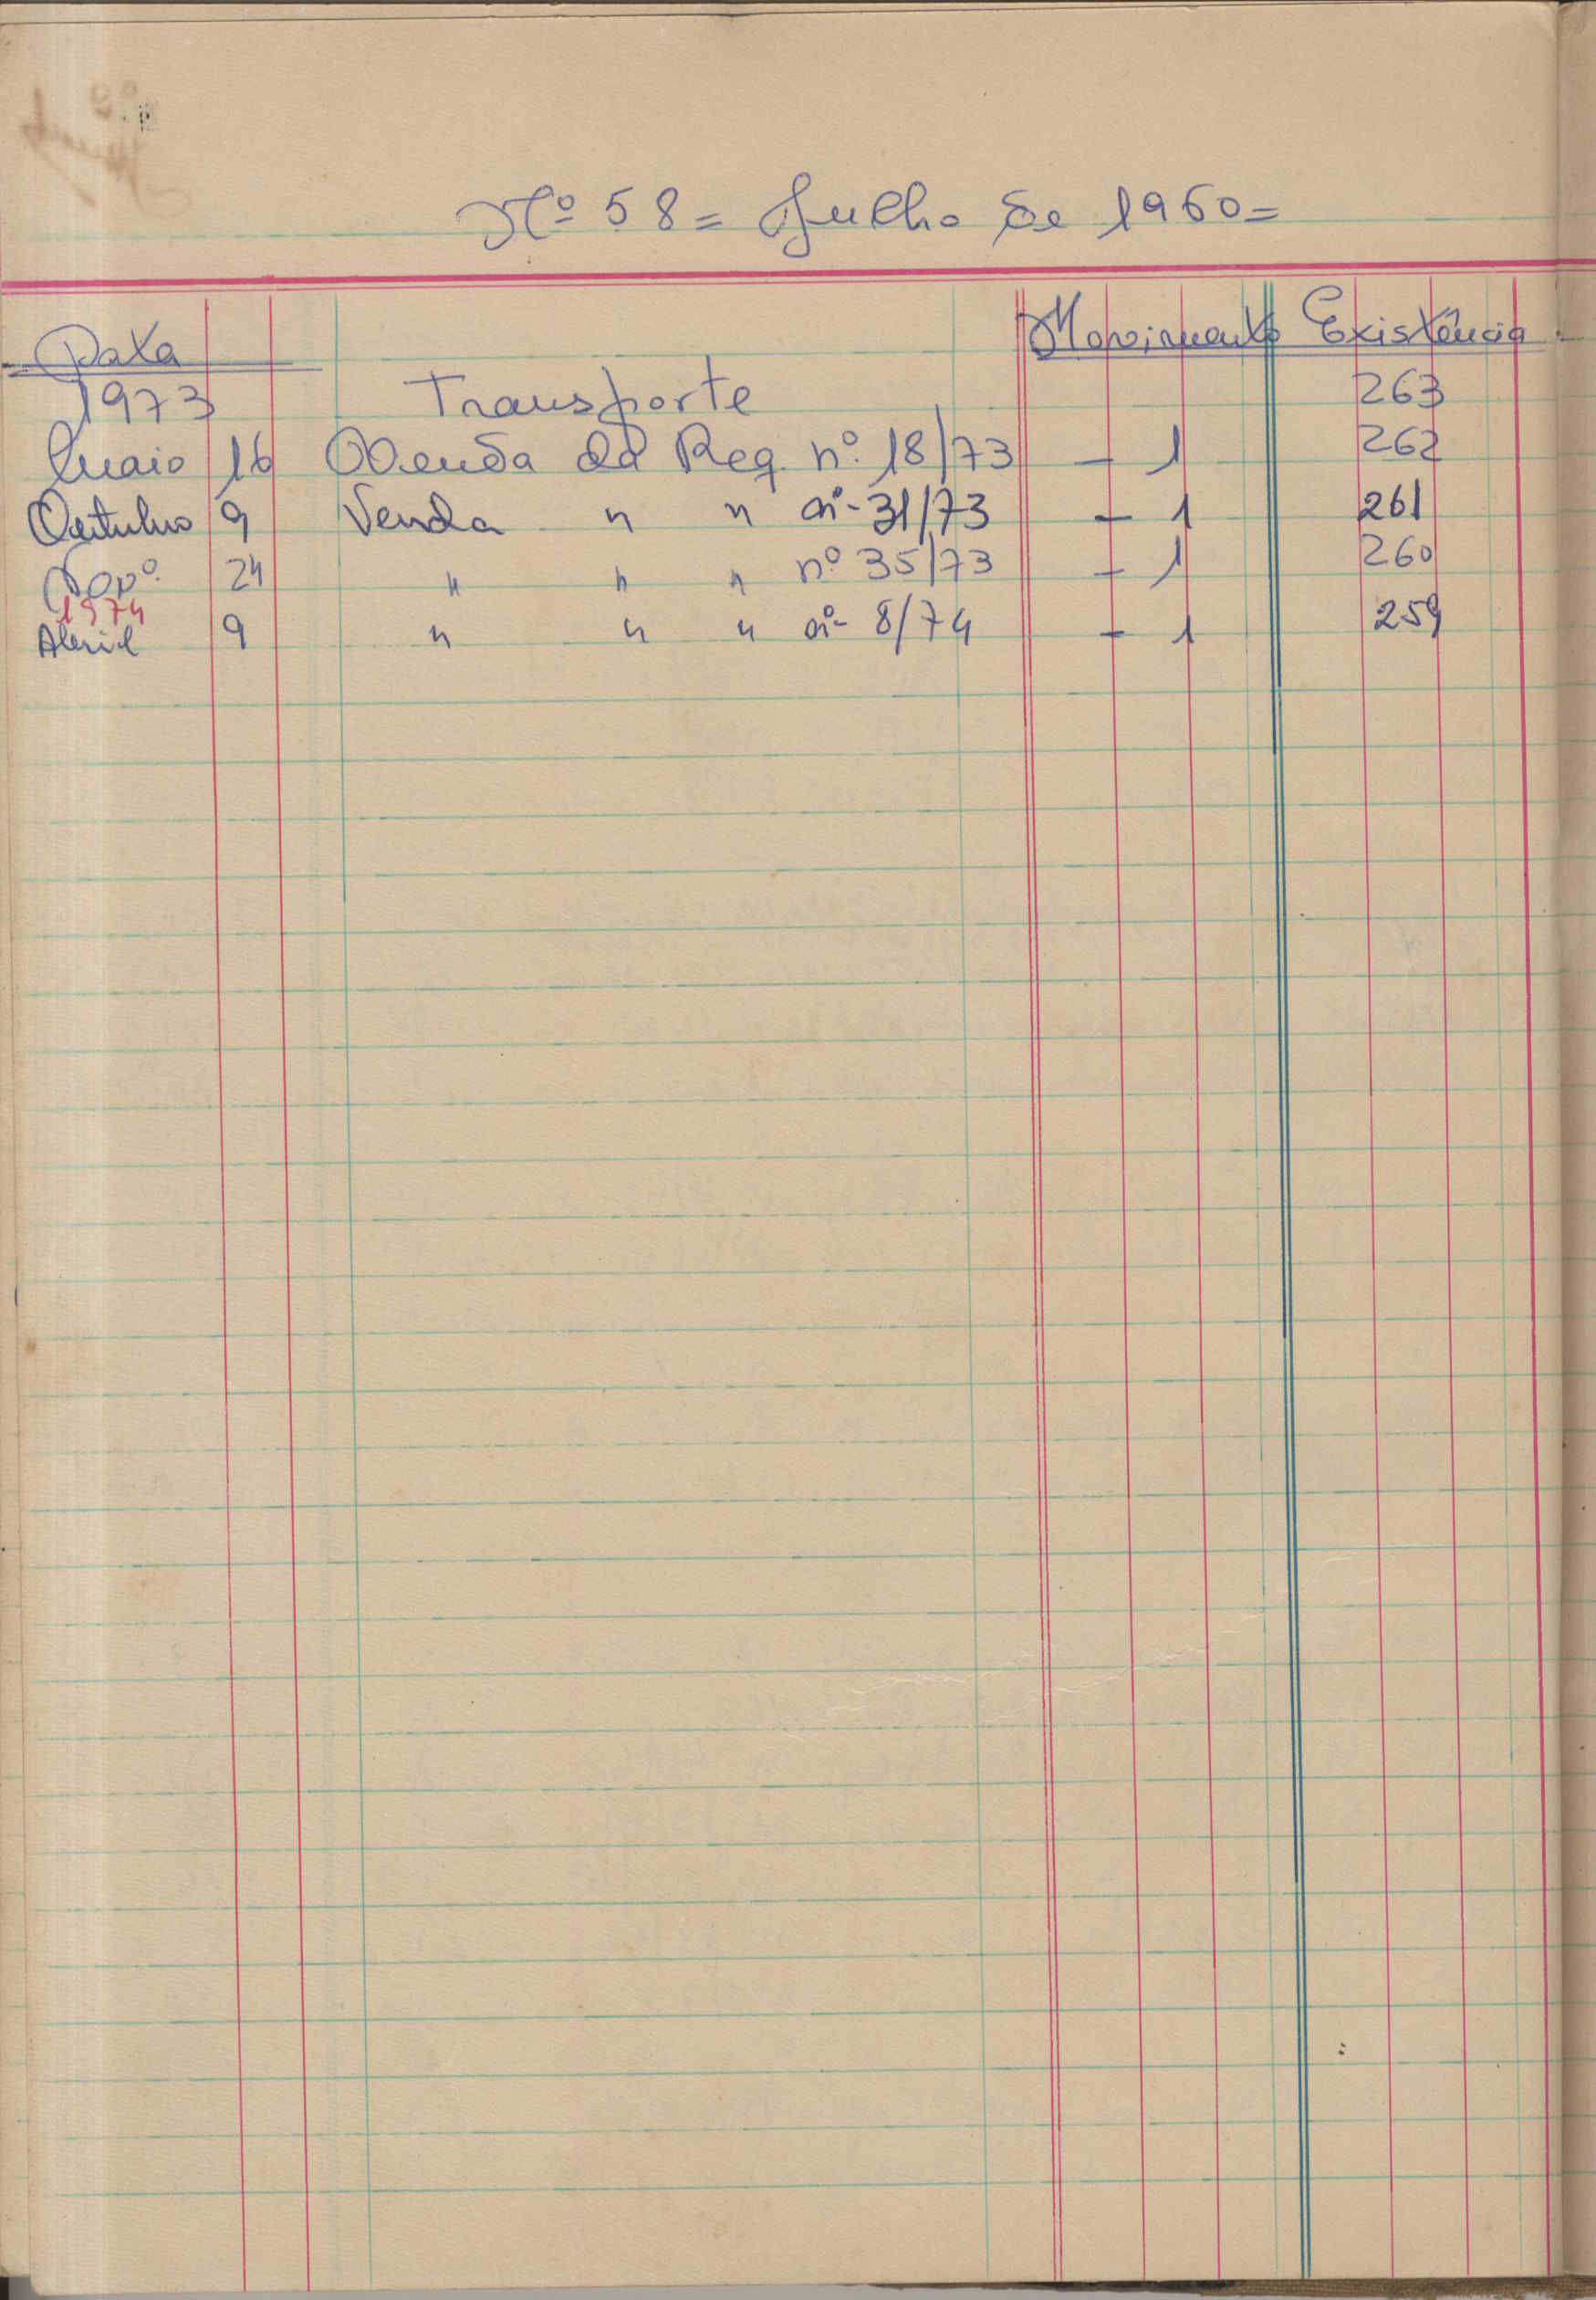 Nº 58 = Julho de 1960 =
Data Movimento Existência
1973 Transporte 263
Maio 16 Venda da Req. nº 18/73 - 1 262
Outubro 9 Venda " " nº 31/73 - 1 261
24 " " " nº 35/73 - 1 260
1974
Abril 9 " " " nº 8/74 - 1 259